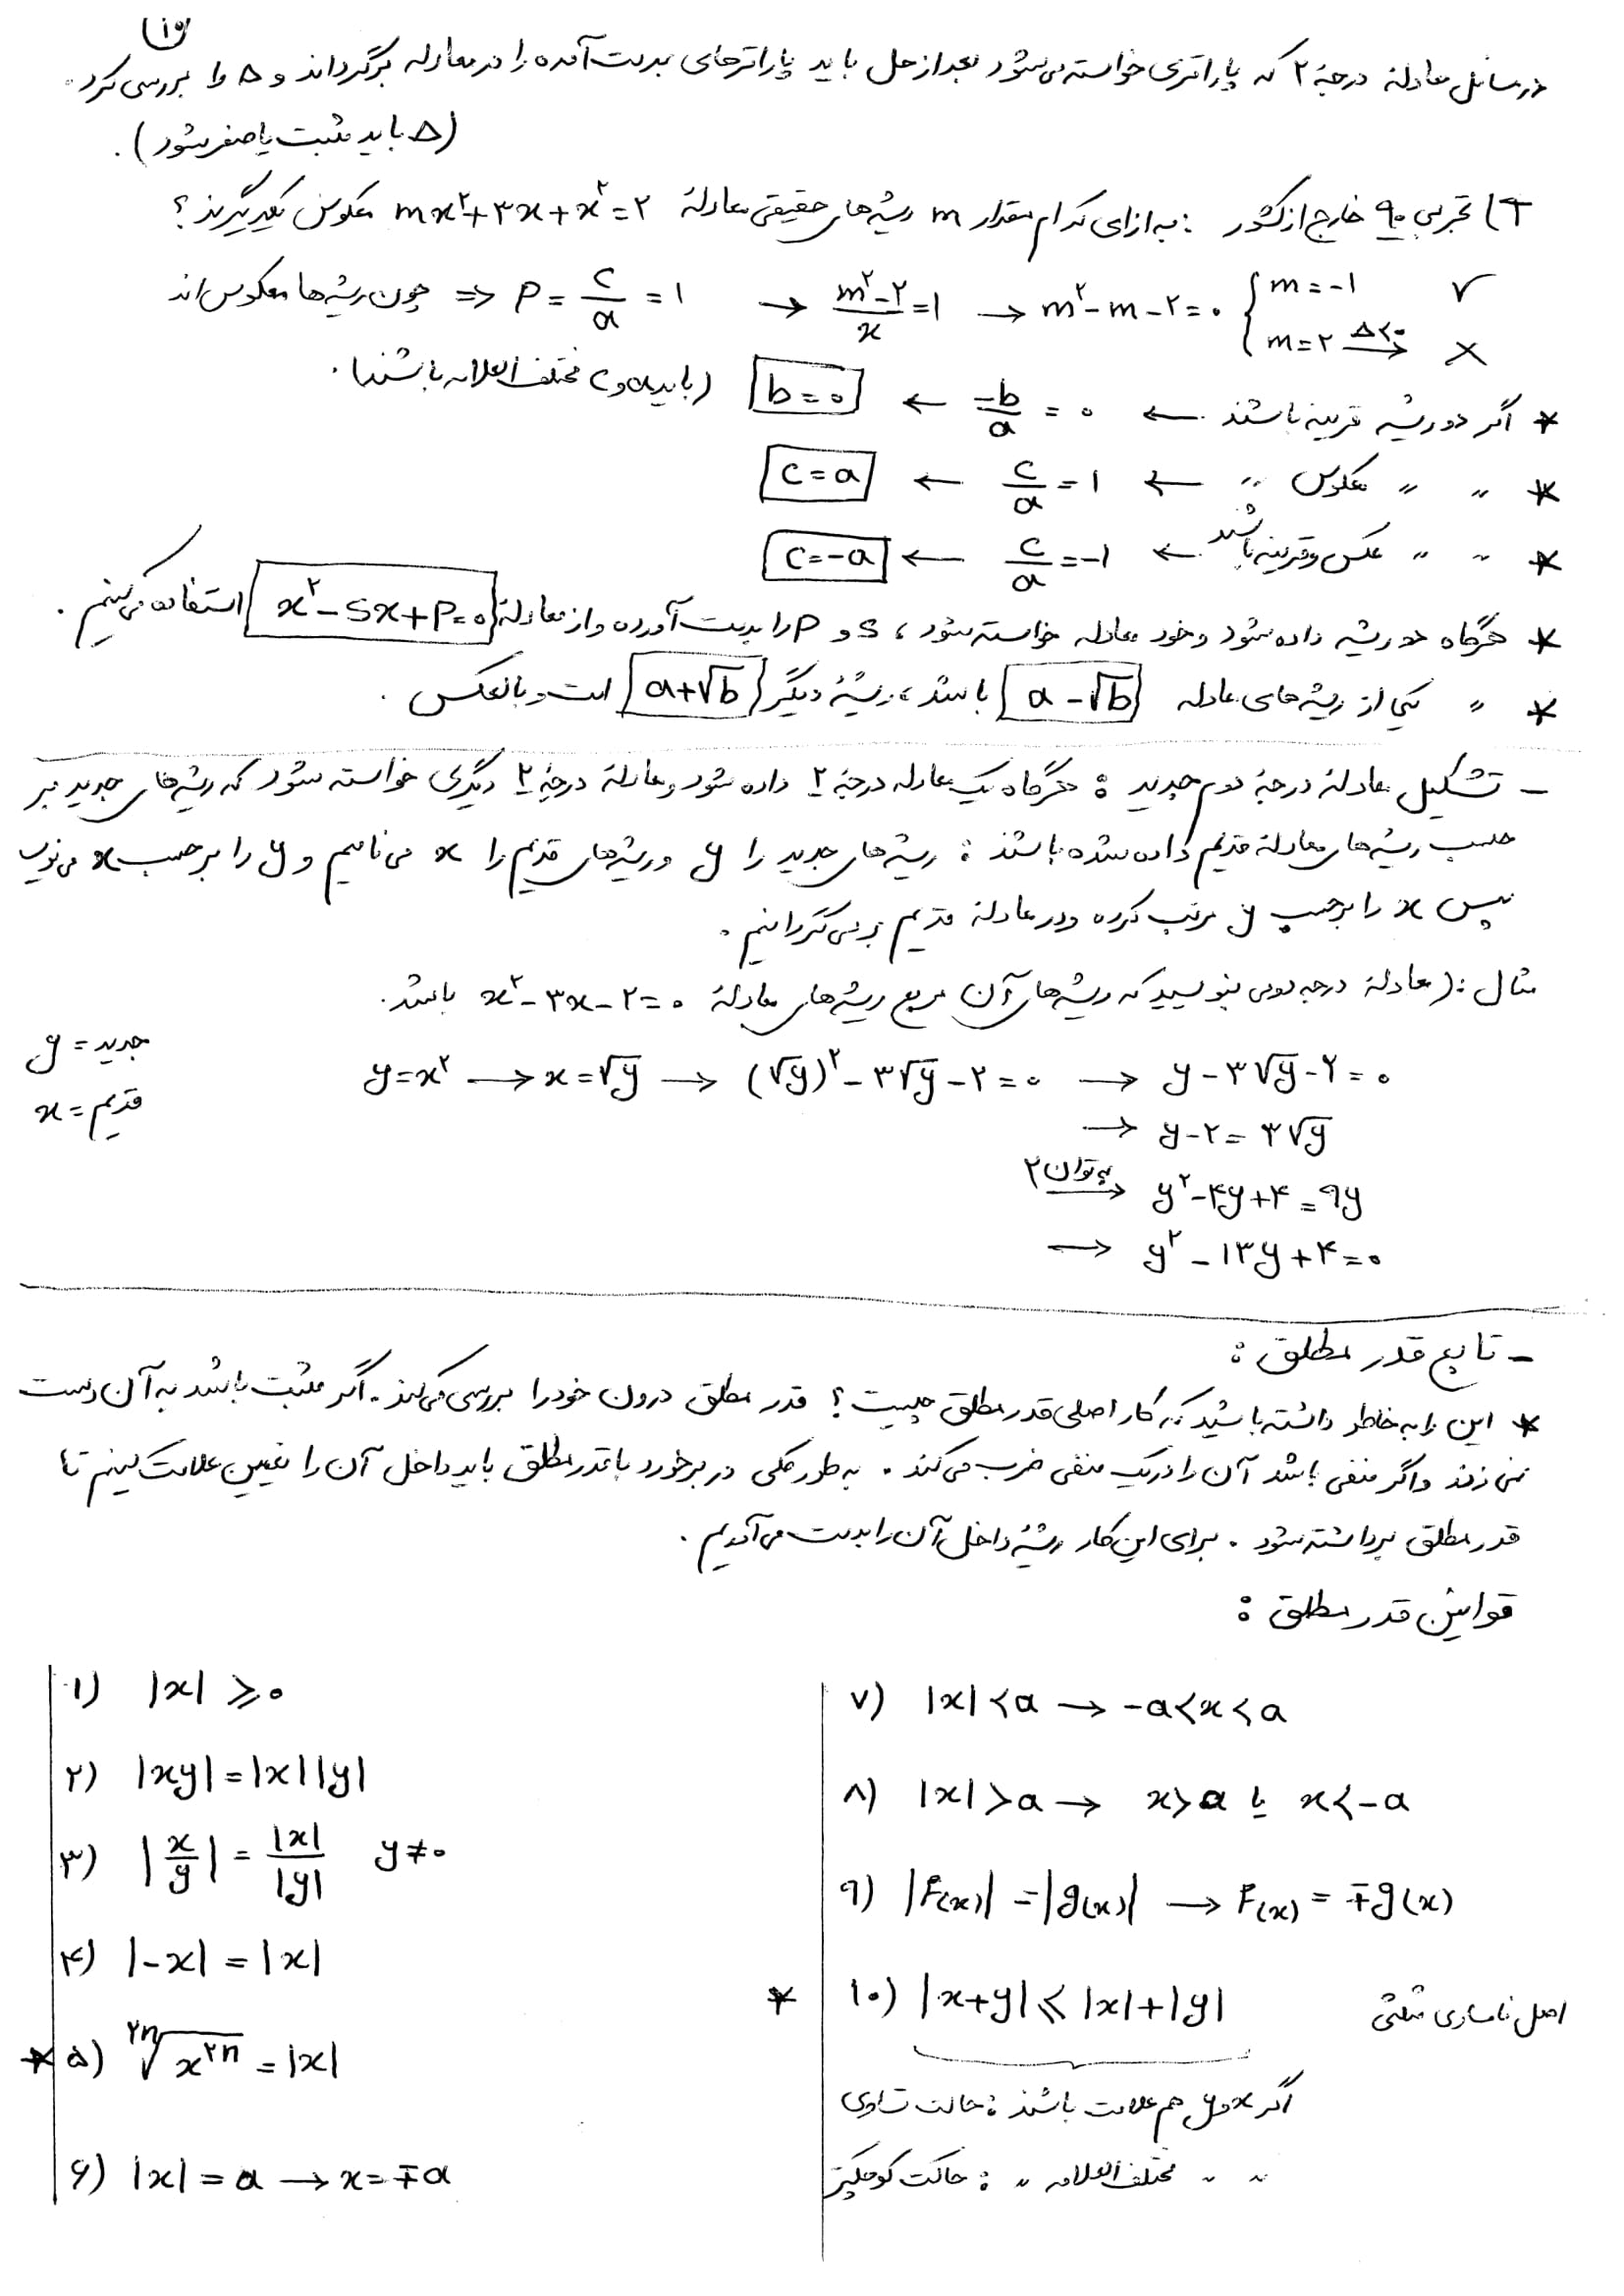 ۱۰
در مسائل معادلهٔ درجهٔ ۲ که پارامتری خواسته می‌شود بعد از حل باید پارامترهای بدست آمده را در معادله برگرداند و Δ را بررسی کرد.
(Δ باید مثبت یا صفر شود).
۹) تجربی ۹۰ خارج از کشور : به ازای کدام مقدار m ریشه‌های حقیقی معادلهٔ mx²+۳x+x²=۲ معکوس یکدیگرند؟
چون ریشه‌ها معکوس‌اند ⇒ P = c/a = ۱ → (m²-۲)/x = ۱ → m²-m-۲=۰ { m=-۱ ✓
m=۲ Δ<۰→ ×
* اگر دو ریشه قرینه باشند ← -b/a = ۰ ← b=۰ (باید a و c مختلف العلامه باشند).
* " " معکوس " ← c/a = ۱ ← c=a
* " " عکس و قرینه باشند ← c/a = -۱ ← c=-a
* هرگاه دو ریشه داده شود و خود معادله خواسته شود، S و P را بدست آورده و از معادلهٔ x²-Sx+P=۰ استفاده می‌کنیم.
* " یکی از ریشه‌های معادله a-√b باشد، ریشهٔ دیگر a+√b است و بالعکس.
- تشکیل معادلهٔ درجهٔ دوم جدید : هرگاه یک معادله درجهٔ ۲ داده شود و معادلهٔ درجهٔ ۲ دیگری خواسته شود که ریشه‌های جدید بر
حسب ریشه‌های معادلهٔ قدیم داده شده باشند : ریشه‌های جدید را y و ریشه‌های قدیم را x می‌نامیم و y را بر حسب x می‌نویسیم
سپس x را برحسب y مرتب کرده و در معادلهٔ قدیم بر می‌گردانیم.
مثال : (معادلهٔ درجه دومی بنویسید که ریشه‌های آن مربع ریشه‌های معادلهٔ x²-۳x-۲=۰ باشند.
جدید = y
قدیم = x
y=x² → x=√y → (√y)²-۳√y-۲=۰ → y-۳√y-۲=۰
→ y-۲=۳√y
به توان ۲→ y²-۴y+۴=۹y
→ y²-۱۳y+۴=۰
- تابع قدر مطلق :
* این را به خاطر داشته باشید که کار اصلی قدر مطلق چیست؟ قدر مطلق درون خود را بررسی می‌کند. اگر مثبت باشد به آن دست
نمی‌زند و اگر منفی باشد آن را در یک منفی ضرب می‌کند. به طور کلی در برخورد با قدر مطلق باید داخل آن را تعیین علامت کنیم تا
قدر مطلق برداشته شود. برای این کار ریشهٔ داخل آن را بدست می‌آوریم.
قوانین قدر مطلق :
۱) |x| ⩾ ۰
۲) |xy|=|x||y|
۳) |x/y| = |x|/|y| y≠۰
۴) |-x|=|x|
* ۵) ²ⁿ√x²ⁿ = |x|
۶) |x|=a → x=∓a
۷) |x|<a → -a<x<a
۸) |x|>a → x>a یا x<-a
۹) |F(x)|=|g(x)| → F(x)=∓g(x)
* ۱۰) |x+y|⩽|x|+|y| اصل نامساوی مثلثی
اگر x و y هم علامت باشند : حالت تساوی
" " مختلف العلامه " : حالت کوچکتر